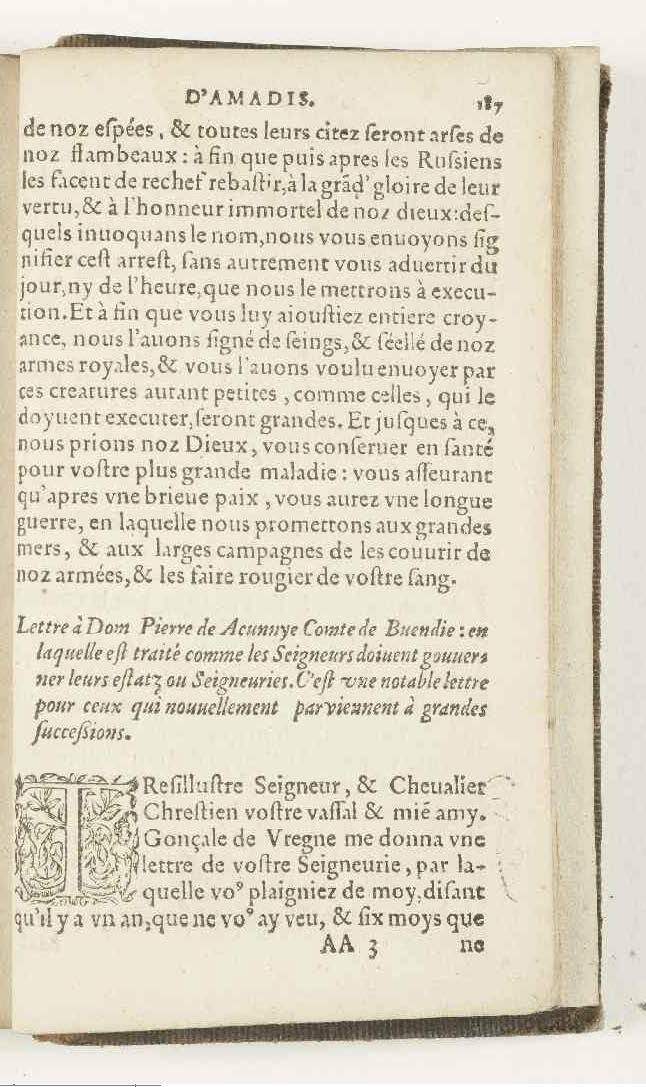 D'AMADIS. 187
de noz eſpées, & toutes leurs citez ſeront arſes de
noz flambeaux : à fin que puis apres les Ruſsiens
les facent de rechef rebaſtir,à la grãd' gloire de leur
vertu,& à l'honneur immortel de noz dieux:deſ-
quels inuoquans le nom,nous vous enuoyons ſig
nifier ceſt arreſt, ſans autrement vous aduertir du
jour,ny de l'heure,que nous le mettrons à execu-
tion.Et à fin que vous luy aiouſtiez entiere croy-
ance, nous l'auons ſigné de ſeings,& ſéellé de noz
armes royales,& vous l'auons voulu enuoyer par
ces creatures autant petites , comme celles, qui le
doyuent executer,ſeront grandes. Et juſques à ce,
nous prions noz Dieux, vous conſeruer en ſanté
pour voſtre plus grande maladie : vous aſſeurant
qu'apres vne brieue paix , vous aurez vne longue
guerre, en laquelle nous promettons aux grandes
mers, & aux larges campagnes de les couurir de
noz armées,& les faire rougier de voſtre ſang.
Lettre à Dom Pierre de Acunnye Comte de Buendie : en
laquelle eſt traité comme les Seigneurs doiuent gouuer-
ner leurs eſtatz ou Seigneuries. C'eſt vne notable lettre
pour ceux qui nouuellement parviennent à grandes
ſucceſsions.
TReſilluſtre Seigneur, & Cheualier
Chreſtien voſtre vaſſal & mié amy.
Gonçale de Vregne me donna vne
lettre de voſtre Seigneurie, par la-
quelle voꝰ plaigniez de moy,diſant
qu'il y a vn an,que ne voꝰ ay veu, & ſix moys que
AA 3 ne